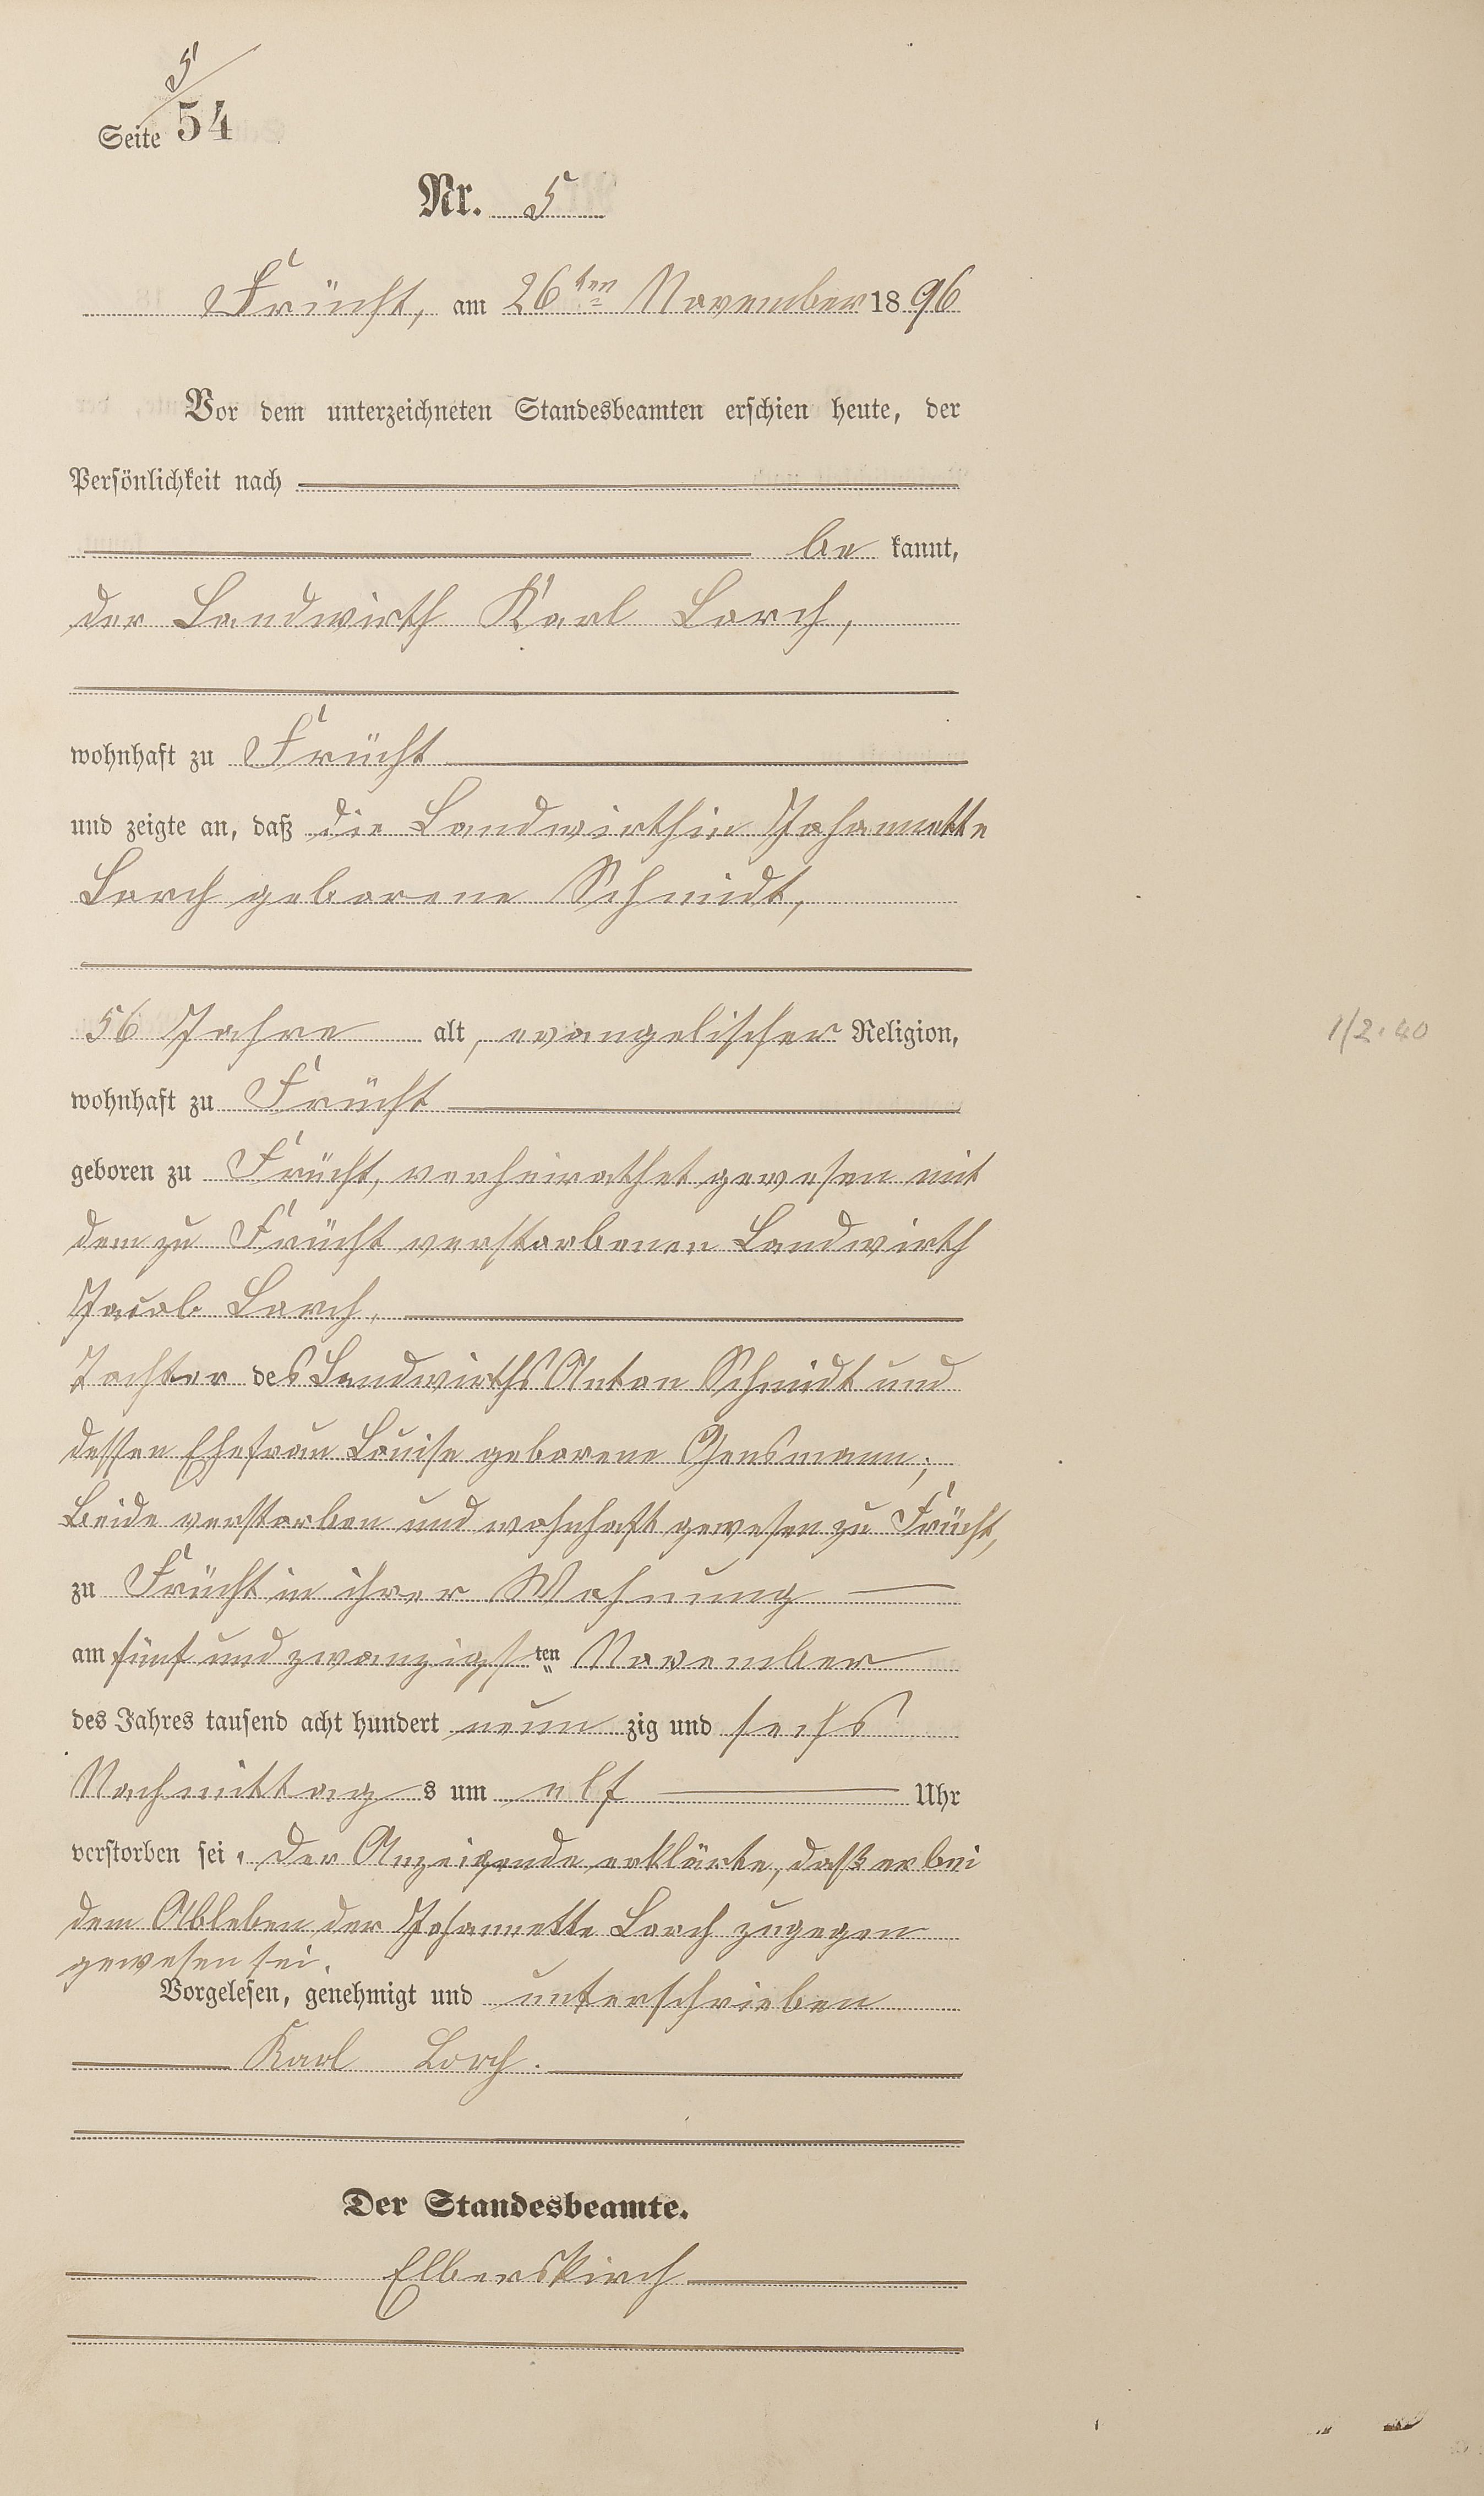 5
Seite 54
Nr. 5
Frücht, am 26ten November 1896
Vor dem unterzeichneten Standesbeamten erschien heute, der
Persönlichkeit nach
be kannt,
der Landwirth Karl Lorch,
wohnhaft zu Frücht
und zeigte an, daß die Landwirthin Johannette
Lorch geborene Schmidt,
56 Jahre alt, evangelischer Religion,
1/2.40
wohnhaft zu Frücht
geboren zu Frücht, verheirathet gewesen mit
dem zu Frücht verstorbenen Landwirth
Jacob Lorch,
Tochter des Landwirths Anton Schmidt und
dessen Ehefrau Louise geborene Gensmann;
Beide verstorben und wohnhaft gewesen zu Frücht,
zu Frücht in ihrer Wohnung
am fünf und zwanzigsten November
des Jahres tausend acht hundert neun zig und sechs
Nachmittag s um elf Uhr
verstorben sei. Der Anzeigende erklärte, daß er bei
dem Ableben der Johannette Lorch zugegen
gewesen sei.
Vorgelesen, genehmigt und unterschrieben
Karl Lorch.
Der Standesbeamte.
Elberskirch